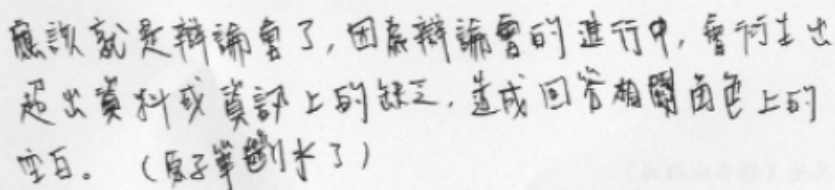 應該就是辯論會了,因為辯論會的進行中,會衍生出
超出資料或資訊上的缺乏,造成回答相關角色上的
空白。(原子筆斷水了)